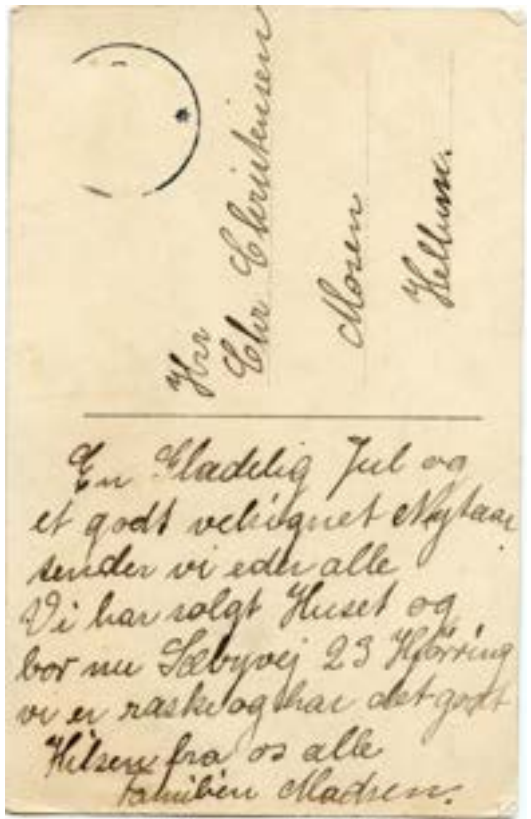 Hr
Chr Christensen
Mosen
Hellum.
En Glædelig Jul og
et godt velsignet Nytaar
sender vi eder alle
Vi har solgt Huset og
bor nu Sæbyvej 23 Hjørring
vi er raske og har det godt
Hilsen fra os alle
Familien Madsen.